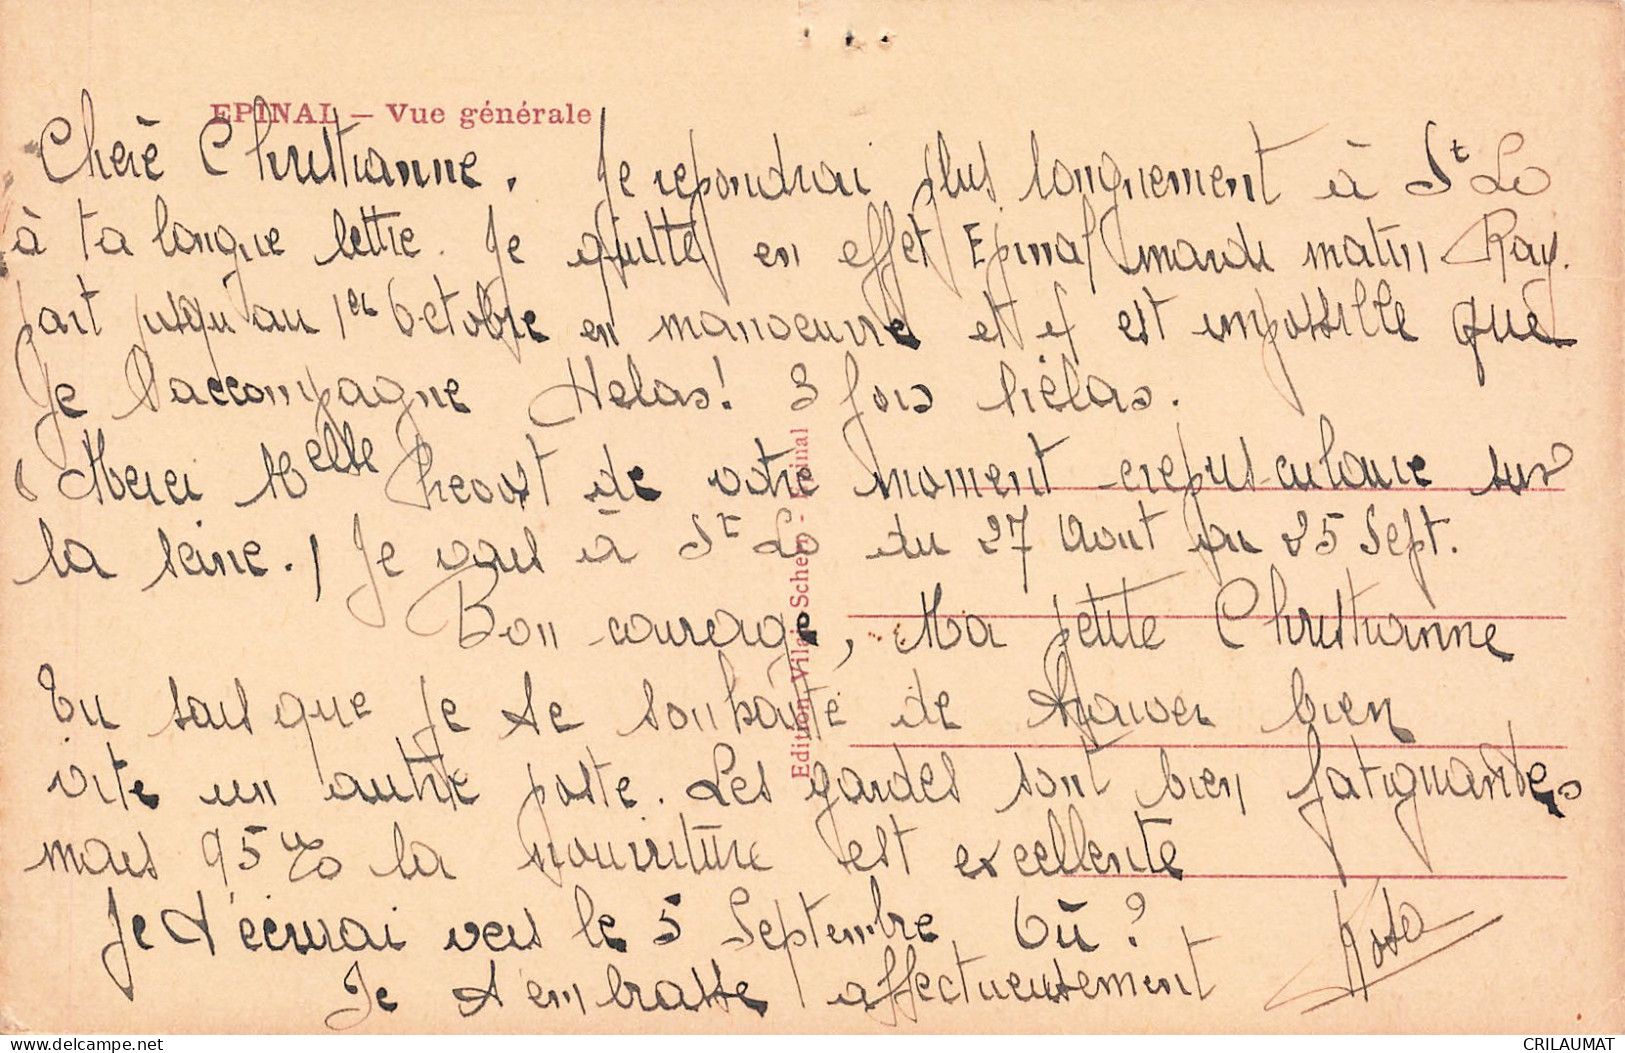 EPINAL — Vue générale
Chère Christianne. Je repondrai plus longuement à St Lo
à ta longue lettre. Je quitte en effet Epinal mardi matin Ray.
part jusqu'au 1er Octobre en manoeuvre et il est impossible que
Je l'accompagne Helas! 3 fois hélas.
Merci Melle Prevost de votre moment crepusculaire sur
la seine. Je vais à St Lo du 27 Aout au 25 Sept.
Bon courage, Ma petite Christianne
Tu sais que je te souhaite de trouver bien
vite un autre poste. Les gardes sont bien fatiguantes
mais 95% la nourriture est excellente
Je t'écrirai vers le 5 Septembre Où ?
Je t'embrasse affectueusement
Edition Vilain-Scherr - Epinal
delcampe.net
CRILAUMAT